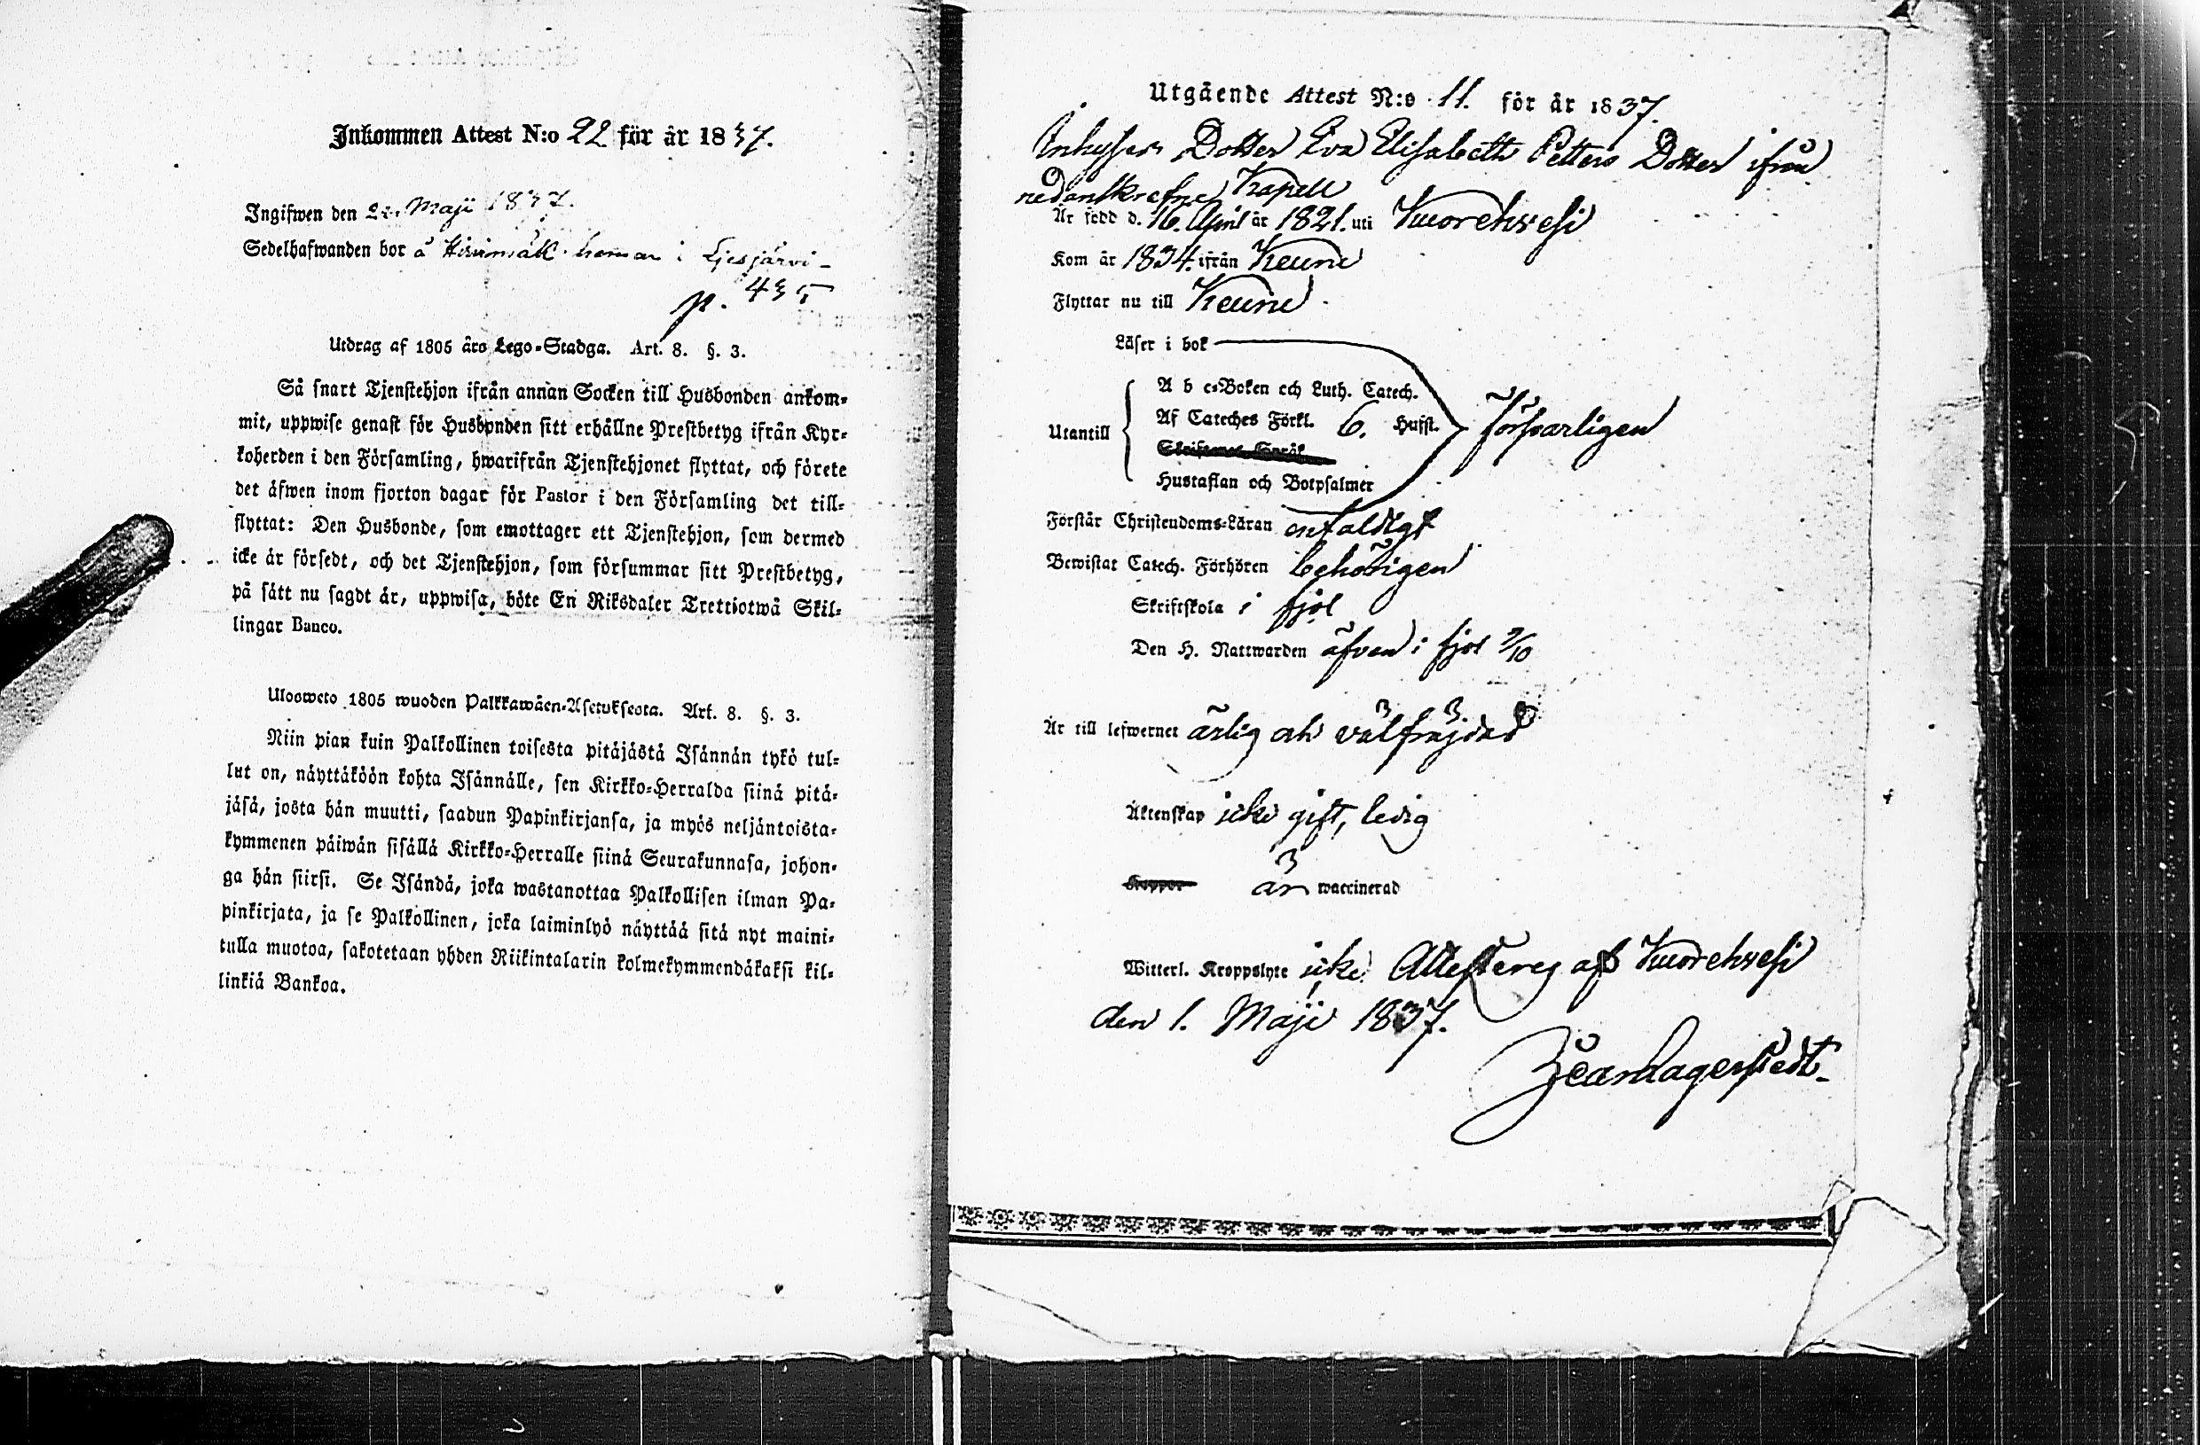 Inkommen Attest N:o 22 för år 1837.
Ingifwen den Maji 1837.
Sedelhafwanden bor å i Liesjärvi
p. 435
Utdrag af 1805 års Lego-Stadga. Art. 8. §. 3.
Så snart Tjenstehjon ifrån annan Socken till Husbonden ankom-
mit, uppwise genast för Husbonden sitt erhållne Prestbetyg ifrån Kyr-
koherden i den Församling, hwarifrån Tjenstehjonet flyttat, och förete
det äfwen inom fjorton dagar för Pastor i den Församling det till-
flyttat: Den Husbonde, som emottager ett Tjenstehjon, som dermed
icke är försedt, och det Tjenstehjon, som försummar sitt Prestbetyg,
på sätt nu sagdt är, uppwisa, böte En Riksdaler Trettiotwå Skil-
lingar Banco.
Ulosweto 1805 wuoden Palkkawäen-Asetuksesta. Art. 8. §. 3.
Niin pian kuin Palkollinen toisesta pitäjästä Isännän tykö tul-
lut on, näyttäköön kohta Isännälle, sen Kirkko-Herralda siinä pitä-
jäsä, josta hän muutti, saadun Papinkirjansa, ja myös neljäntoista-
kymmenen päiwän sisällä Kirkko-Herralle siinä Seurakunnasa, johon-
ga hän siirsi. Se Isändä, joka wastanottaa Palkollisen ilman Pa-
pinkirjata, ja se Palkollinen, joka laiminlyö näyttää sitä nyt maini-
tulla muotoa, sakotetaan yhden Riikintalarin kolmekymmendäkaksi kil-
linkiä Bankoa.
Utgående Attest N:o 11. för år 1837.
Inhyses Dotter Eva Elisabeth Petters Dotter ifrån
nedanskrefne Kapell
Är född d. 16. April år 1821. uti Kuorehvesi
Kom år 1834. ifrån Keuru
Flyttar nu till Keuru
Läser i bok
A b c-Boken och Luth. Catech.
Utantill Af Cateches Förkl. 6. Hufst. försvarligen
Skriftenes Språk
Hustaflan och Botpsalmer
Förstår Christendoms-Läran enfaldigt
Bewistat Catech. Förhören behörigen
Skriftskola i fjol
Den H. Nattwarden äfven i fjol 9/10
Är till lefwernet ärlig och välfräjdad
Äktenskap icke gift, ledig
Koppor är waccinerad
Witterl. Kroppslyte icke. Attesteras af Kuorehvesi
den 1. Maji 1837.